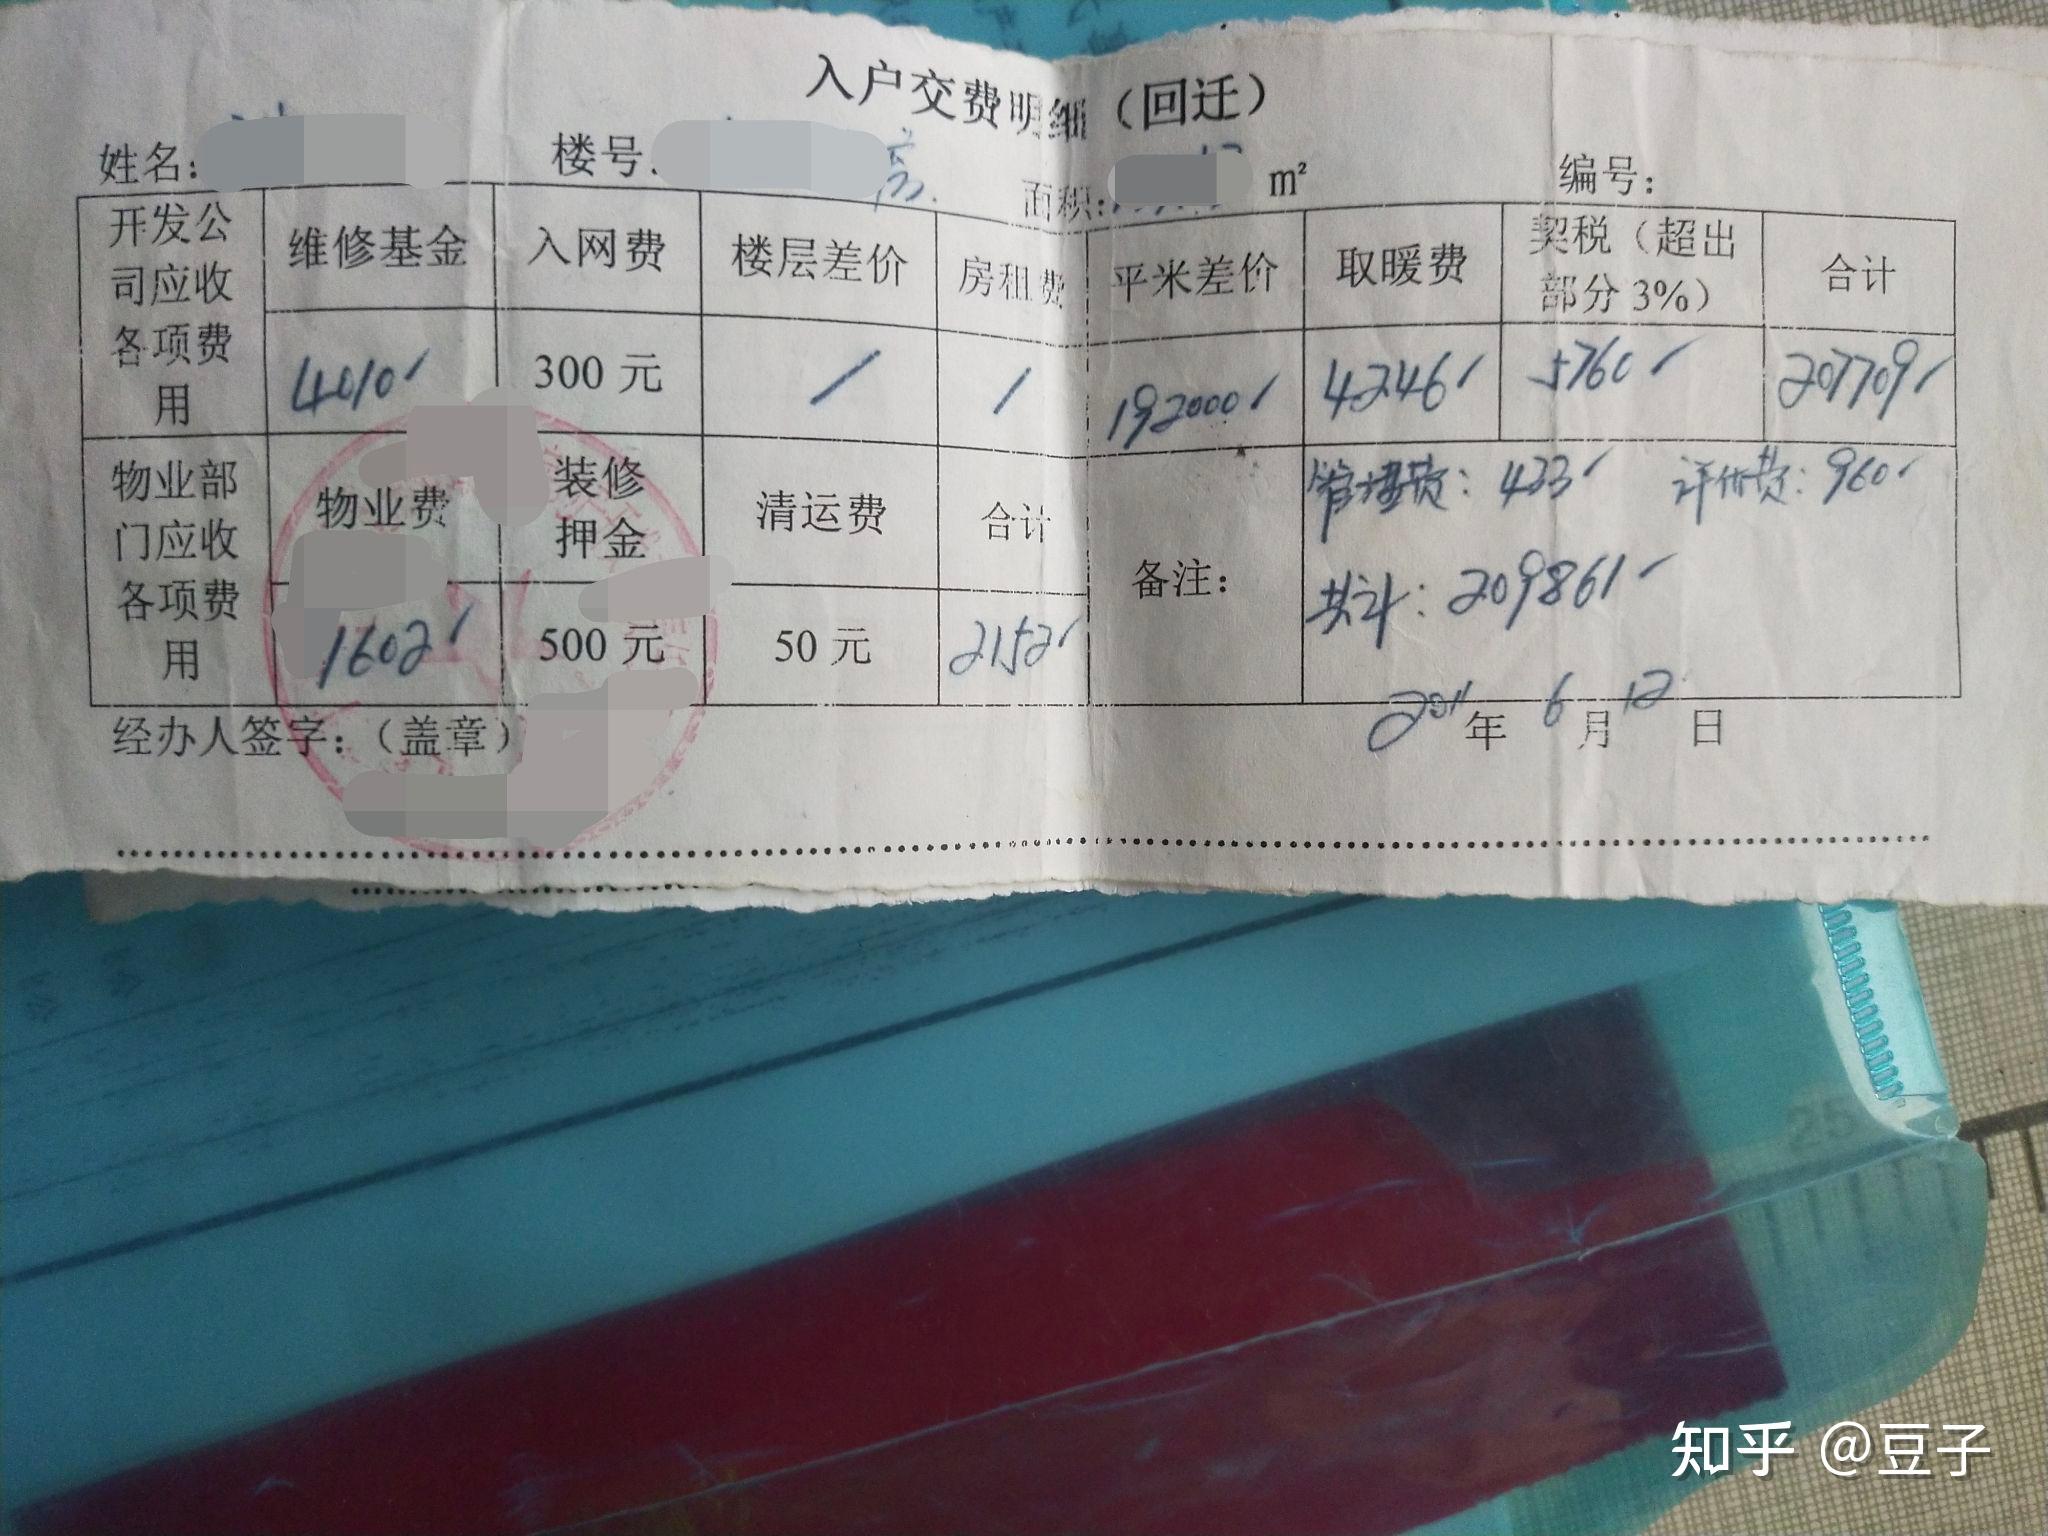 入户交费明细（回迁）
姓名： 楼号： 面积： m² 编号：
开发公司应收各项费用 维修基金 入网费 楼层差价 房租费 平米差价 取暖费 契税（超出部分3%） 合计
4010 300元 / / 192000 4246 5760 207709
物业部门应收各项费用 物业费 装修押金 清运费 合计 备注： 管理费：433 评价费：960
1602 500元 50元 2152 共计：209861
经办人签字：（盖章） 2011年 6月12日
25
知乎 @豆子